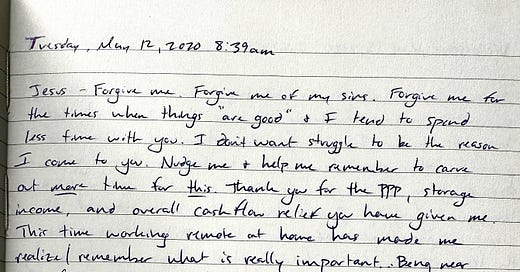 Tuesday, May 12, 2020 8:39am
Jesus - Forgive me. Forgive me of my sins. Forgive me for
the times when things "are good" & I tend to spend
less time with you. I don't want struggle to be the reason
I come to you. Nudge me & help me remember to carve
out more time for this. Thank you for the PPP, storage
income, and overall cashflow relief you have given me.
This time working remote at home has made me
realize/remember what is really important. Being near